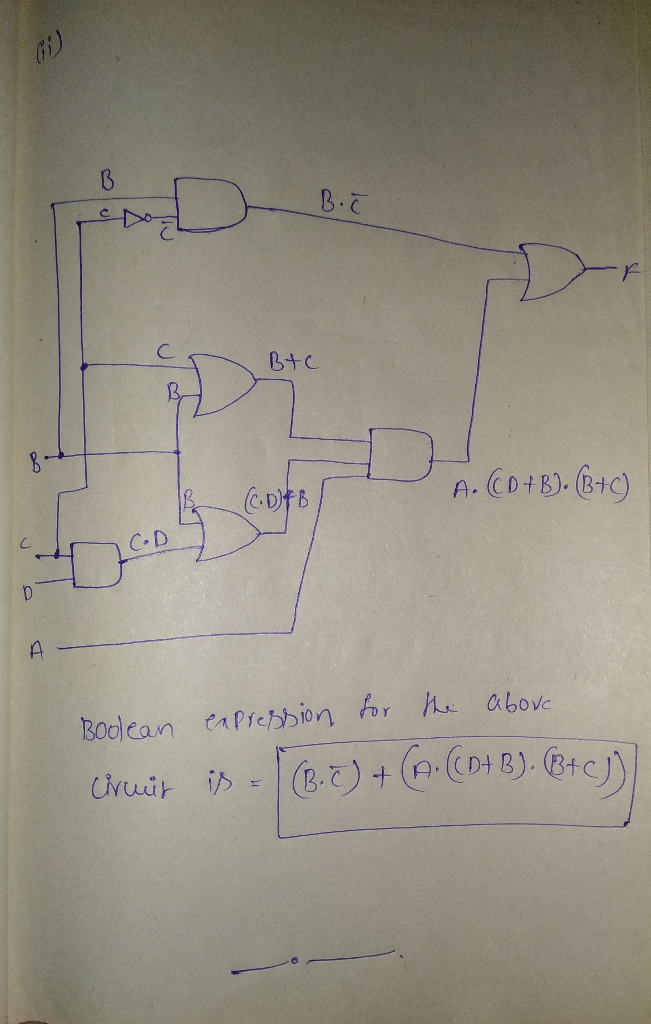 (ii)
B
c
C̄
B·C̄
F
C
B+C
B
B
B
(C·D)+B
A. (CD+B). (B+C)
C
C·D
D
A
Boolean expression for the above
circuit is = (B.C̄) + (A.((CD+B).(B+C))